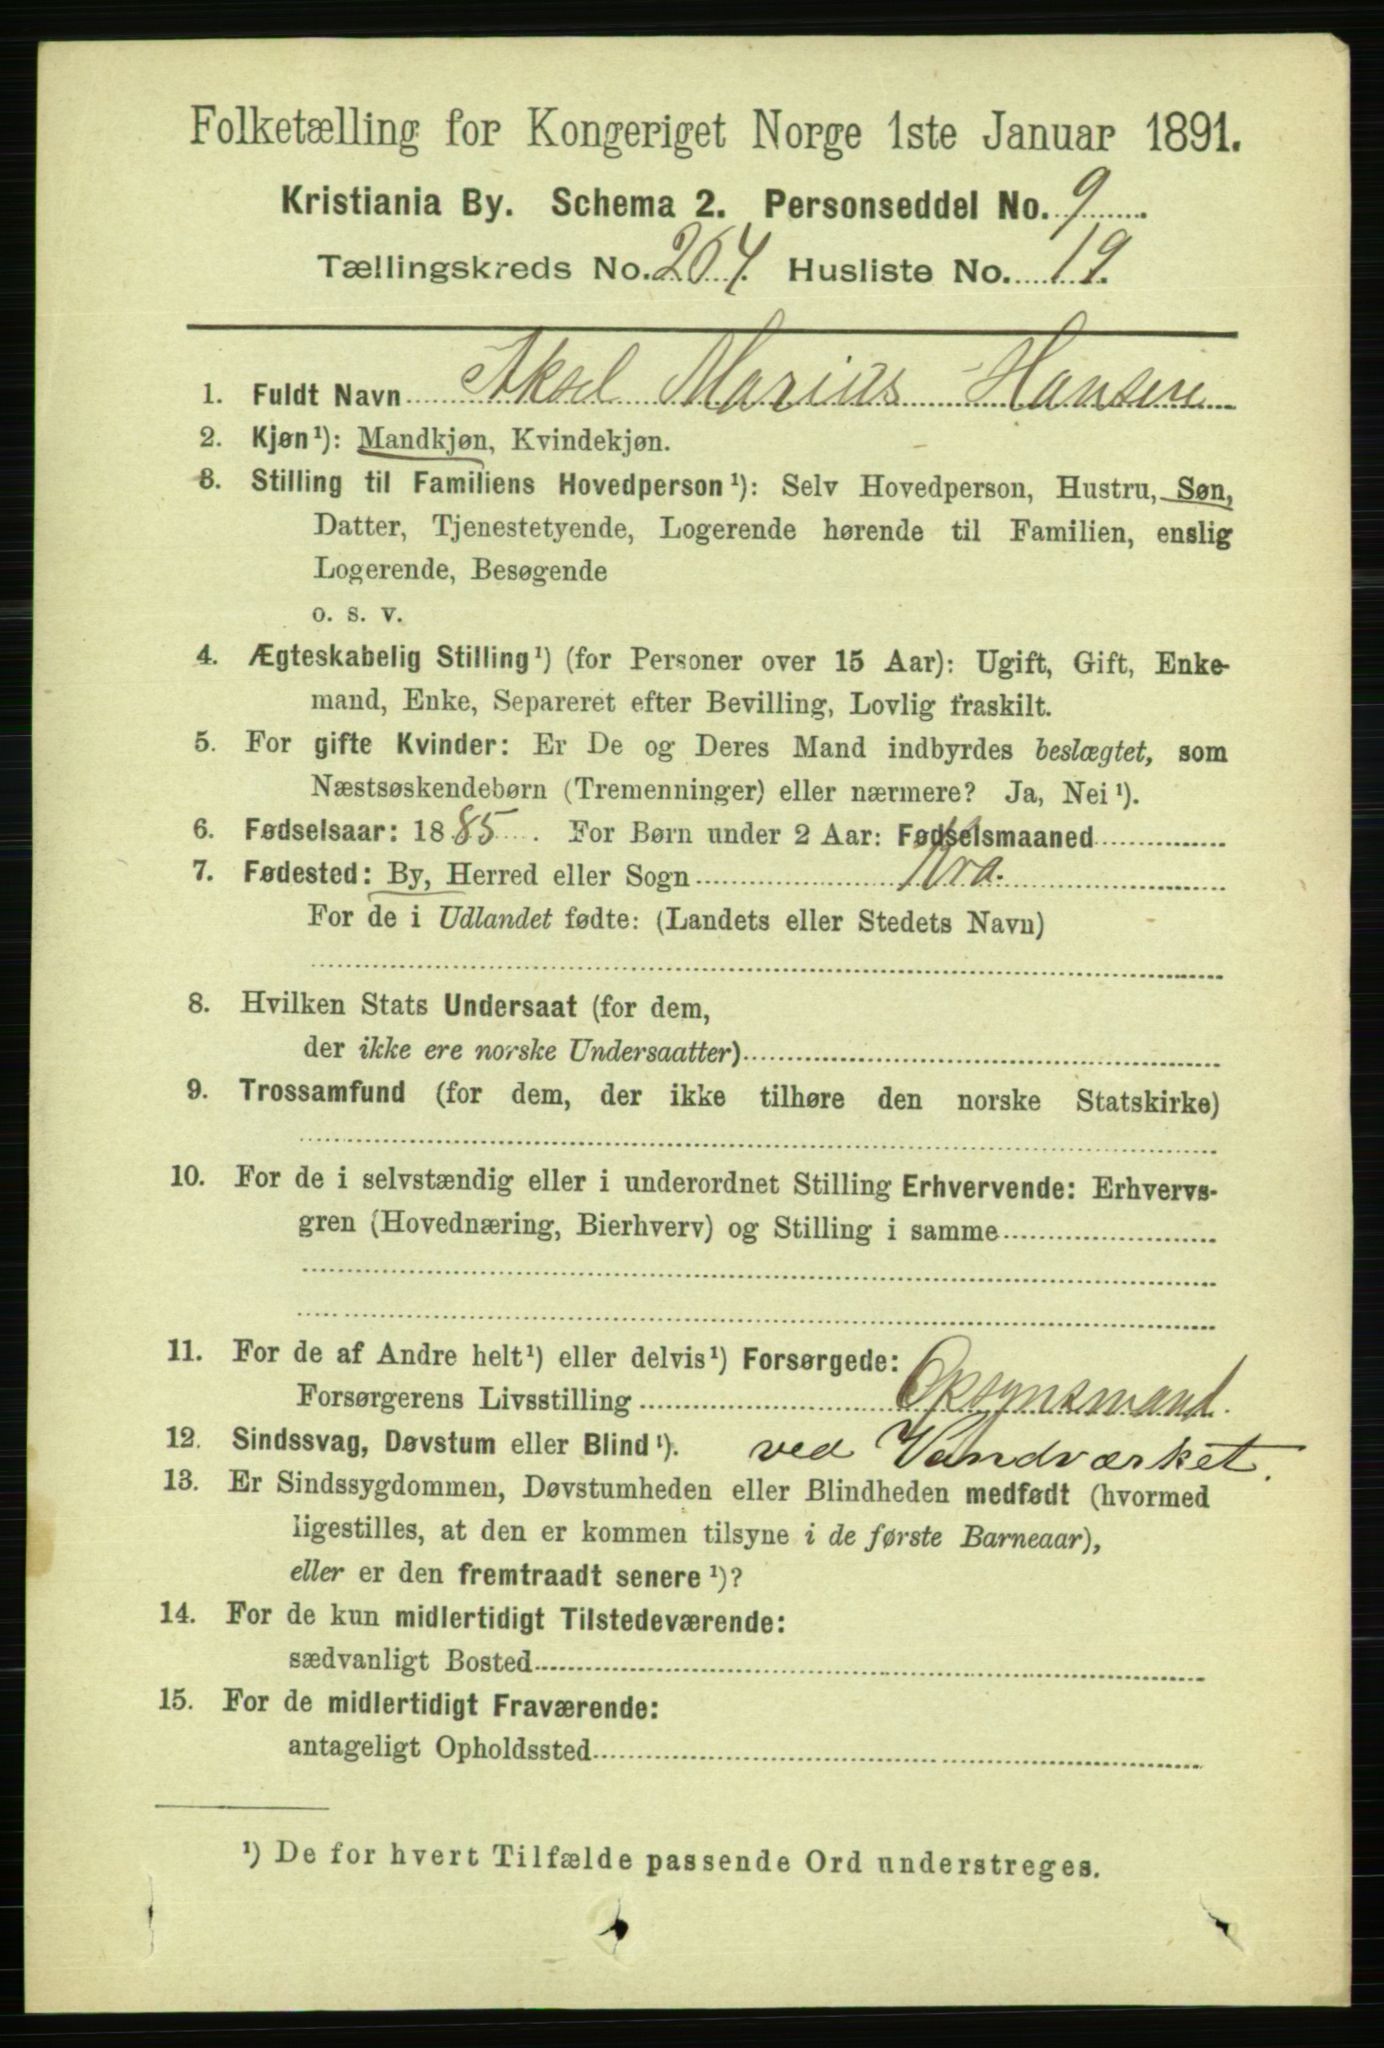 Folketælling for Kongeriget Norge 1ste Januar 1891.
Kristiania By. Schema 2. Personseddel No. 9
Tællingskreds No. 204. Husliste No. 19.
1. Fuldt Navn Aksel Marius Hansen
2. Kjøn¹): Mandkjøn, Kvindekjøn.
3. Stilling til Familiens Hovedperson¹): Selv Hovedperson, Hustru, Søn,
Datter, Tjenestetyende, Logerende hørende til Familien, enslig
Logerende, Besøgende
o. s. v.
4. Ægteskabelig Stilling¹) (for Personer over 15 Aar): Ugift, Gift, Enke-
mand, Enke, Separeret efter Bevilling, Lovlig fraskilt.
5. For gifte Kvinder: Er De og Deres Mand indbyrdes beslægtet, som
Næstsøskendebørn (Tremenninger) eller nærmere? Ja, Nei¹).
6. Fødselsaar: 1885. For Børn under 2 Aar: Fødselsmaaned
7. Fødested: By, Herred eller Sogn Kra.
For de i Udlandet fødte: (Landets eller Stedets Navn)
8. Hvilken Stats Undersaat (for dem,
der ikke ere norske Undersaatter)
9. Trossamfund (for dem, der ikke tilhøre den norske Statskirke)
10. For de i selvstændig eller i underordnet Stilling Erhvervende: Erhvervs-
gren (Hovednæring, Bierhverv) og Stilling i samme
11. For de af Andre helt¹) eller delvis¹) Forsørgede:
Forsørgerens Livsstilling Opsynsmand.
12. Sindssvag, Døvstum eller Blind¹). ved Vandværket.
13. Er Sindssygdommen, Døvstumheden eller Blindheden medfødt (hvormed
ligestilles, at den er kommen tilsyne i de første Barneaar),
eller er den fremtraadt senere¹)?
14. For de kun midlertidigt Tilstedeværende:
sædvanligt Bosted
15. For de midlertidigt Fraværende:
antageligt Opholdssted
¹) De for hvert Tilfælde passende Ord understreges.